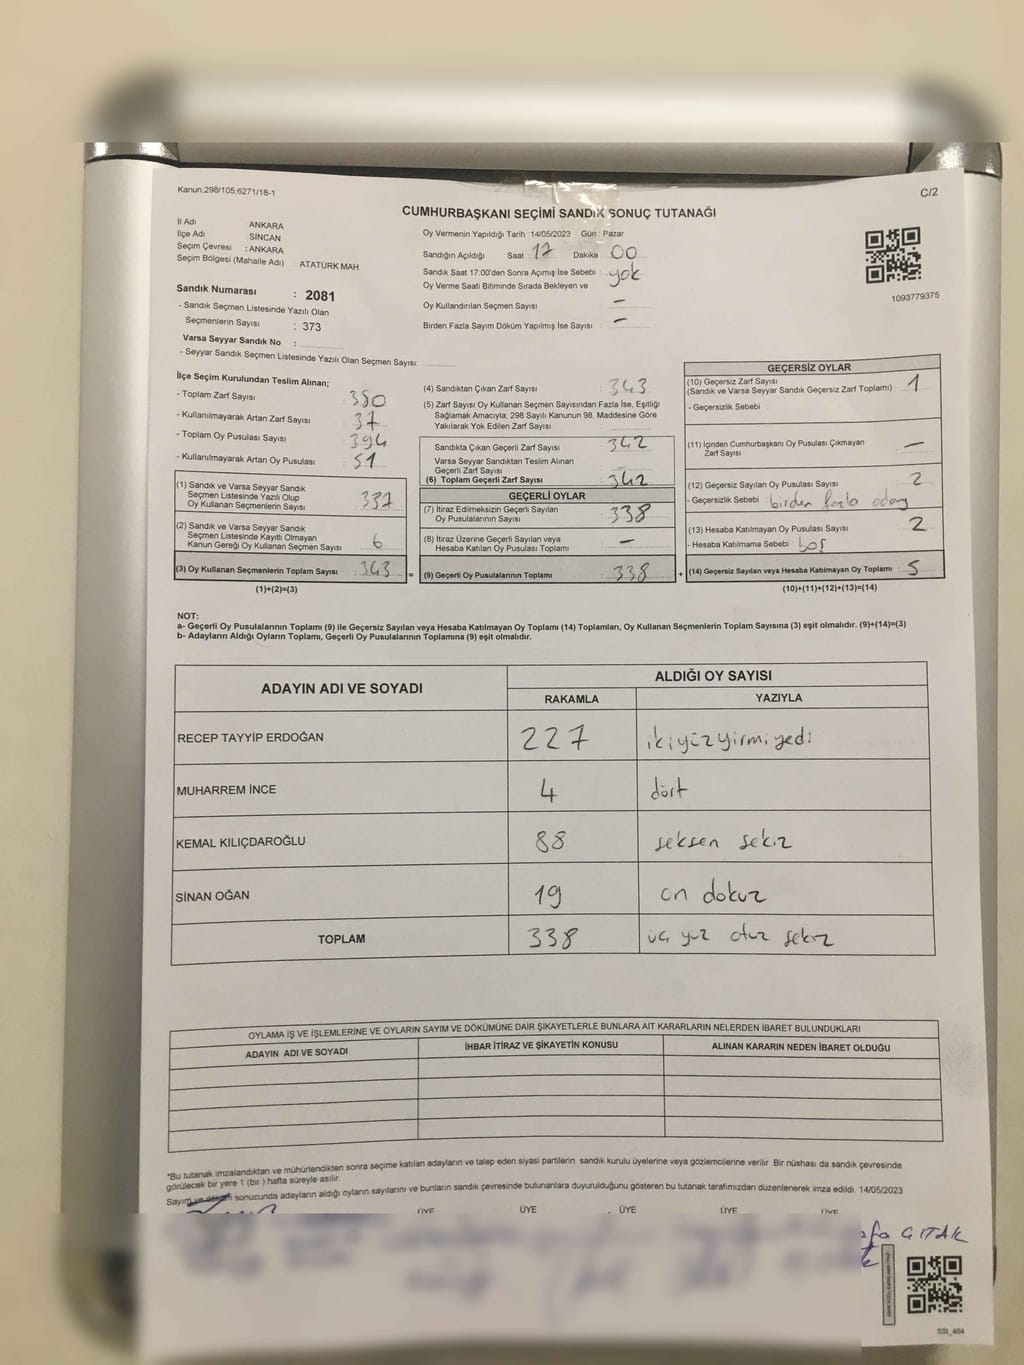 Kanun:298/105,6271/18-1
C/2
CUMHURBAŞKANI SEÇİMİ SANDIK SONUÇ TUTANAĞI
İl Adı ANKARA
İlçe Adı : SİNCAN
Seçim Çevresi : ANKARA
Seçim Bölgesi (Mahalle Adı) ATATÜRK MAH.
Sandık Numarası : 2081
- Sandık Seçmen Listesinde Yazılı Olan
Seçmenlerin Sayısı : 373
Varsa Seyyar Sandık No :
- Seyyar Sandık Seçmen Listesinde Yazılı Olan Seçmen Sayısı:
Oy Vermenin Yapıldığı Tarih : 14/05/2023 Gün : Pazar
Sandığın Açıldığı Saat : 17 Dakika 00
Sandık Saat 17:00'den Sonra Açımış İse Sebebi : yok
Oy Verme Saati Bitiminde Sırada Bekleyen ve
Oy Kullandırılan Seçmen Sayısı : –
Birden Fazla Sayım Döküm Yapılmış İse Sayısı : –
1093779375
İlçe Seçim Kurulundan Teslim Alınan;
- Toplam Zarf Sayısı : 380
- Kullanılmayarak Artan Zarf Sayısı : 37
- Toplam Oy Pusulası Sayısı : 394
- Kullanılmayarak Artan Oy Pusulası : 51
(1) Sandık ve Varsa Seyyar Sandık
Seçmen Listesinde Yazılı Olup
Oy Kullanan Seçmenlerin Sayısı : 337
(2) Sandık ve Varsa Seyyar Sandık
Seçmen Listesinde Kayıtlı Olmayan
Kanun Gereği Oy Kullanan Seçmen Sayısı : 6
(3) Oy Kullanan Seçmenlerin Toplam Sayısı : 343
(1)+(2)=(3)
(4) Sandıktan Çıkan Zarf Sayısı : 343
(5) Zarf Sayısı Oy Kullanan Seçmen Sayısından Fazla İse, Eşitliği
Sağlamak Amacıyla; 298 Sayılı Kanunun 98. Maddesine Göre
Yakılarak Yok Edilen Zarf Sayısı :
Sandıkta Çıkan Geçerli Zarf Sayısı : 342
Varsa Seyyar Sandıktan Teslim Alınan
Geçerli Zarf Sayısı :
(6) Toplam Geçerli Zarf Sayısı : 342
GEÇERLİ OYLAR
(7) İtiraz Edilmeksizin Geçerli Sayılan
Oy Pusulalarının Sayısı : 338
(8) İtiraz Üzerine Geçerli Sayılan veya
Hesaba Katılan Oy Pusulası Toplamı : –
= (9) Geçerli Oy Pusulalarının Toplamı : 338
GEÇERSİZ OYLAR
(10) Geçersiz Zarf Sayısı
(Sandık ve Varsa Seyyar Sandık Geçersiz Zarf Toplamı) : 1
- Geçersizlik Sebebi :
(11) İçinden Cumhurbaşkanı Oy Pusulası Çıkmayan
Zarf Sayısı : –
(12) Geçersiz Sayılan Oy Pusulası Sayısı : 2
- Geçersizlik Sebebi : birden fazla aday
(13) Hesaba Katılmayan Oy Pusulası Sayısı : 2
- Hesaba Katılmama Sebebi : boş
+ (14) Geçersiz Sayılan veya Hesaba Katılmayan Oy Toplamı : 5
(10)+(11)+(12)+(13)=(14)
NOT:
a- Geçerli Oy Pusulalarının Toplamı (9) ile Geçersiz Sayılan veya Hesaba Katılmayan Oy Toplamı (14) Toplamları, Oy Kullanan Seçmenlerin Toplam Sayısına (3) eşit olmalıdır. (9)+(14)=(3)
b- Adayların Aldığı Oyların Toplamı, Geçerli Oy Pusulalarının Toplamına (9) eşit olmalıdır.
ADAYIN ADI VE SOYADI ALDIĞI OY SAYISI
RAKAMLA YAZIYLA
RECEP TAYYİP ERDOĞAN 227 iki yüz yirmi yedi
MUHARREM İNCE 4 dört
KEMAL KILIÇDAROĞLU 88 seksen sekiz
SİNAN OĞAN 19 on dokuz
TOPLAM 338 üç yüz otuz sekiz
OYLAMA İŞ VE İŞLEMLERİNE VE OYLARIN SAYIM VE DÖKÜMÜNE DAİR ŞİKAYETLERLE BUNLARA AİT KARARLARIN NELERDEN İBARET BULUNDUKLARI
ADAYIN ADI VE SOYADI İHBAR İTİRAZ VE ŞİKAYETİN KONUSU ALINAN KARARIN NEDEN İBARET OLDUĞU
*Bu tutanak imzalandıktan ve mühürlendikten sonra seçime katılan adayların ve talep eden siyasi partilerin sandık kurulu üyelerine veya gözlemcilerine verilir. Bir nüshası da sandık çevresinde
görülecek bir yere 1 (bir) hafta süreyle asılır.
Sayım ve döküm sonucunda adayların aldığı oyların sayılarını ve bunların sandık çevresinde bulunanlara duyurulduğunu gösteren bu tutanak tarafımızdan düzenlenerek imza edildi. 14/05/2023
ÜYE ÜYE ÜYE ÜYE ÜYE